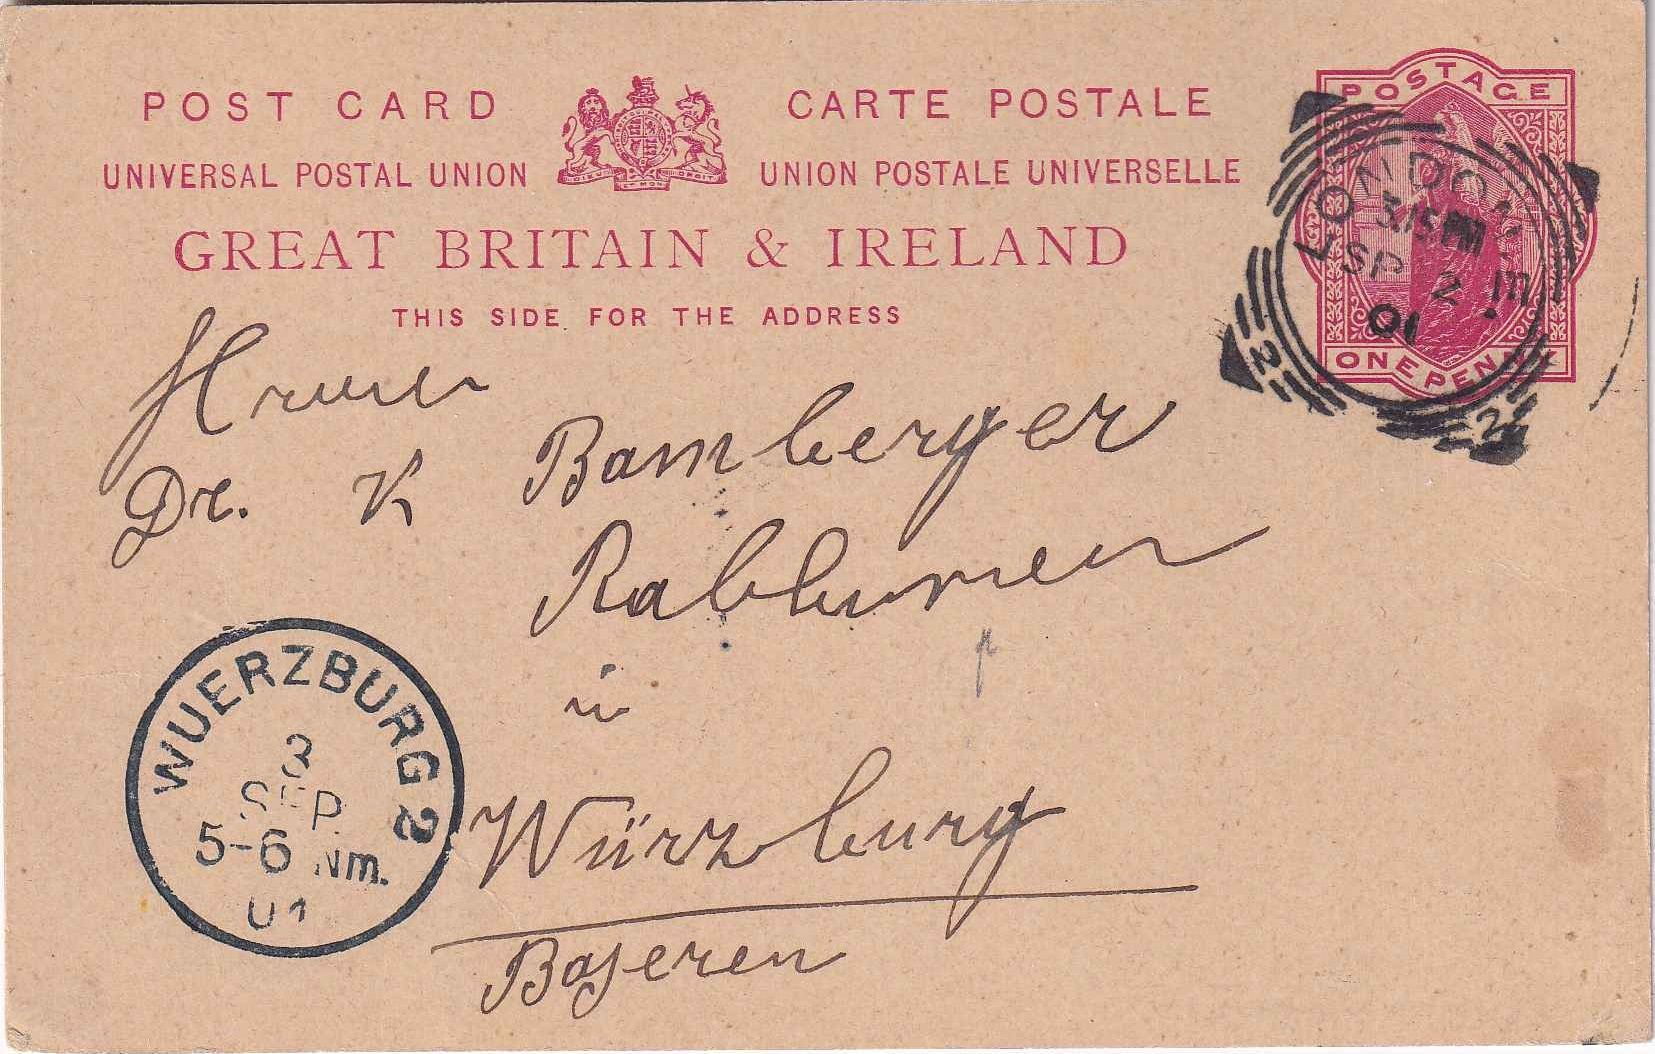 POST CARD CARTE POSTALE
UNIVERSAL POSTAL UNION UNION POSTALE UNIVERSELLE
GREAT BRITAIN & IRELAND
THIS SIDE FOR THE ADDRESS
POSTAGE
ONE PENNY
LONDON
3.15 PM
SP 2
01
E
2 2
Herrn
Dr. K Bamberger
Rabbiner
in
Würzburg
Bayeren
WUERZBURG 2
3
SEP.
5-6 Nm.
01